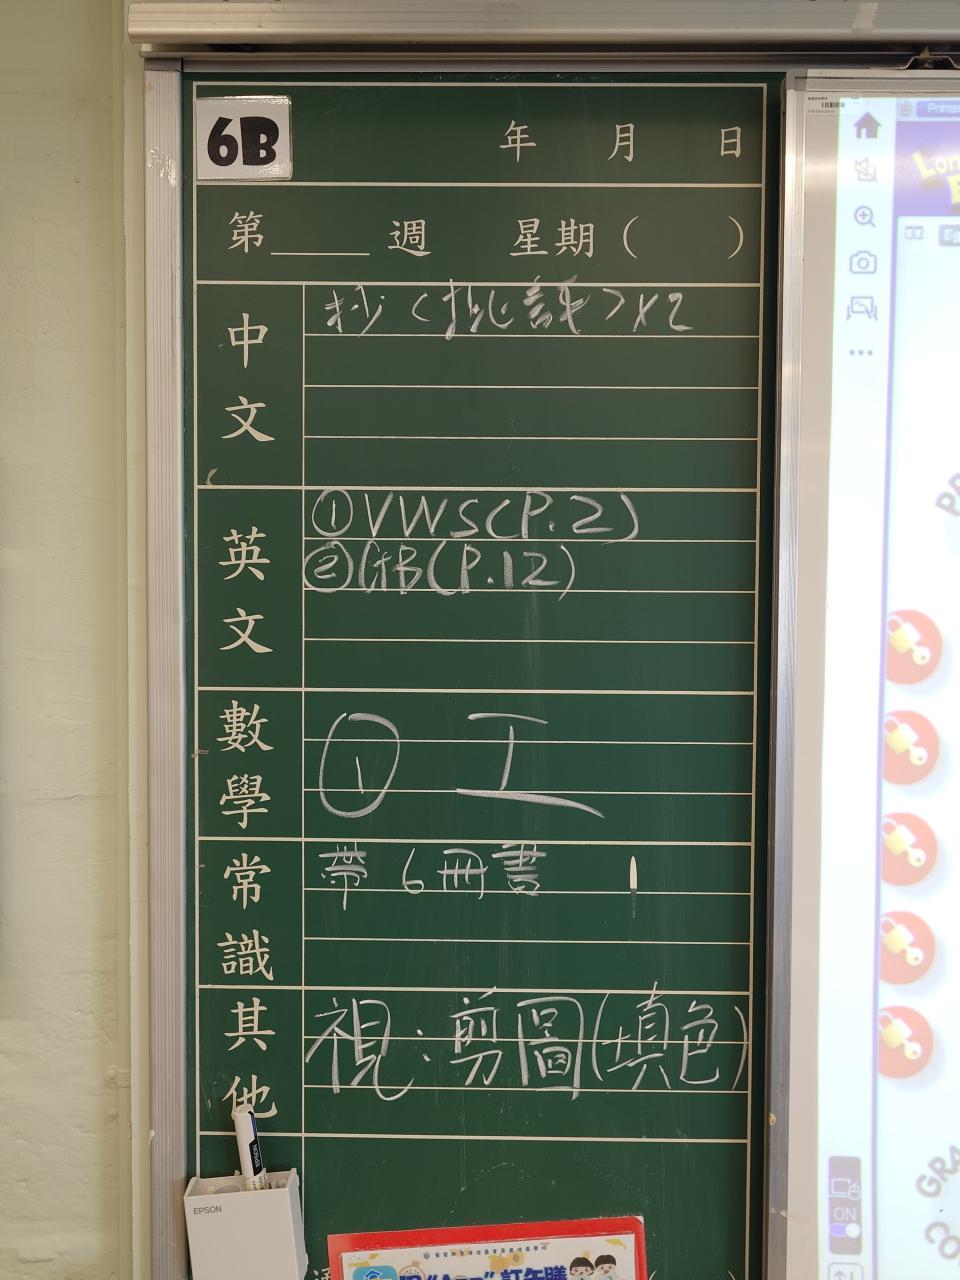 6B
年 月 日
第 週 星期( )
中文
抄〈批評〉x2
英文
①VWS(P.2)
②GB(P.12)
數學
① 工
常識
帶 6 冊書
其他
視:剪圖(填色)
EPSON
Prima
ON
訂午膳